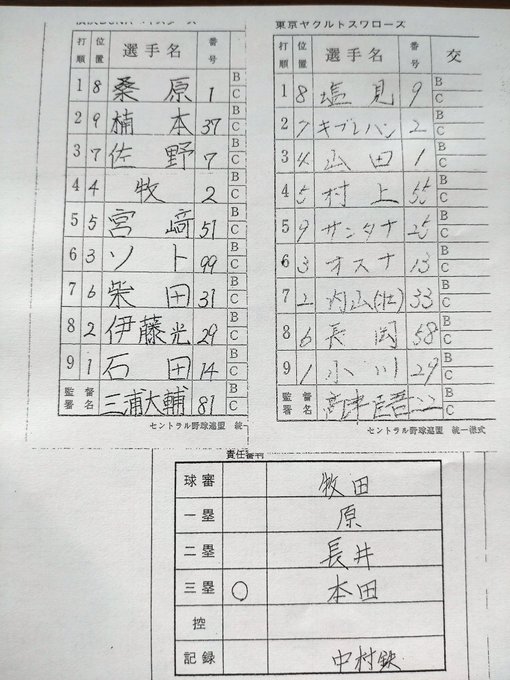 横浜DeNAベイスターズ
打順 位置 選手名 番号
1 8 桑原 1 B C
2 9 楠本 37 B C
3 7 佐野 7 B C
4 4 牧 2 B C
5 5 宮﨑 51 B C
6 3 ソト 99 B C
7 6 柴田 31 B C
8 2 伊藤光 29 B C
9 1 石田 14 B C
監督署名 三浦大輔 81 B C
セントラル野球連盟 統一
東京ヤクルトスワローズ
打順 位置 選手名 番号 交
1 8 塩見 9 B C
2 7 キブレハン 2 B C
3 4 山田 1 B C
4 5 村上 55 B C
5 9 サンタナ 25 B C
6 3 オスナ 13 B C
7 2 内山(壮) 33 B C
8 6 長岡 58 B C
9 1 小川 29 B C
監督署名 高津臣吾 22 B C
セントラル野球連盟 統一様式
責任審判
球審 牧田
一塁 原
二塁 長井
三塁 ○ 本田
控
記録 中村鉄